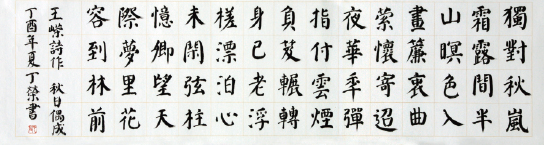 獨對秋嵐
霜露間半
山暝色入
畫簾裏曲
縈懷寄迢
夜華秊彈
指付雲煙
負笈輾轉
身已老浮
槎漂泊心
未閑弦柱
憶卿望天
際夢里花
容到林前
王嶸詩作 秋日偶成
丁酉年夏丁榮書